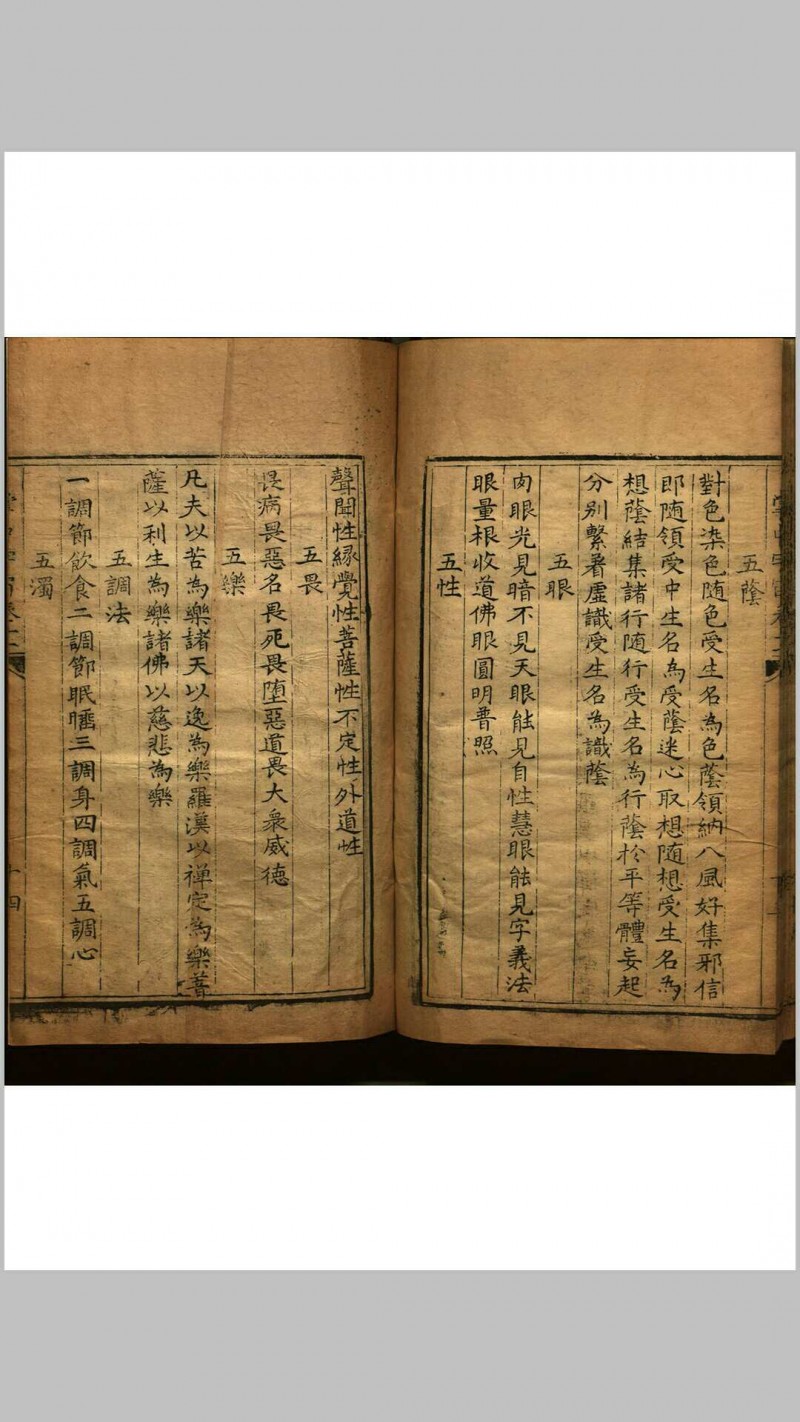 五蔭
對色染色随色受生名為色蔭領納八風好集邪信
即随領受中生名為受蔭迷心取想随想受生名為
想蔭結集諸行随行受生名為行蔭扵平等體妄起
分别繫著虚識受生名為識蔭
五眼
肉眼光見暗不見天眼能見自性慧眼能見字義法
眼量根收道佛眼圓明普照
五性
聲聞性緣覺性菩薩性不定性外道性
五畏
畏病畏惡名畏死畏堕惡道畏大衆威德
五樂
凡夫以苦為樂諸天以逸為樂羅漢以禅定為樂菩
薩以利生為樂諸佛以慈悲為樂
五調法
一調節飲食二調節眠睡三調身四調氣五調心
五濁
十四